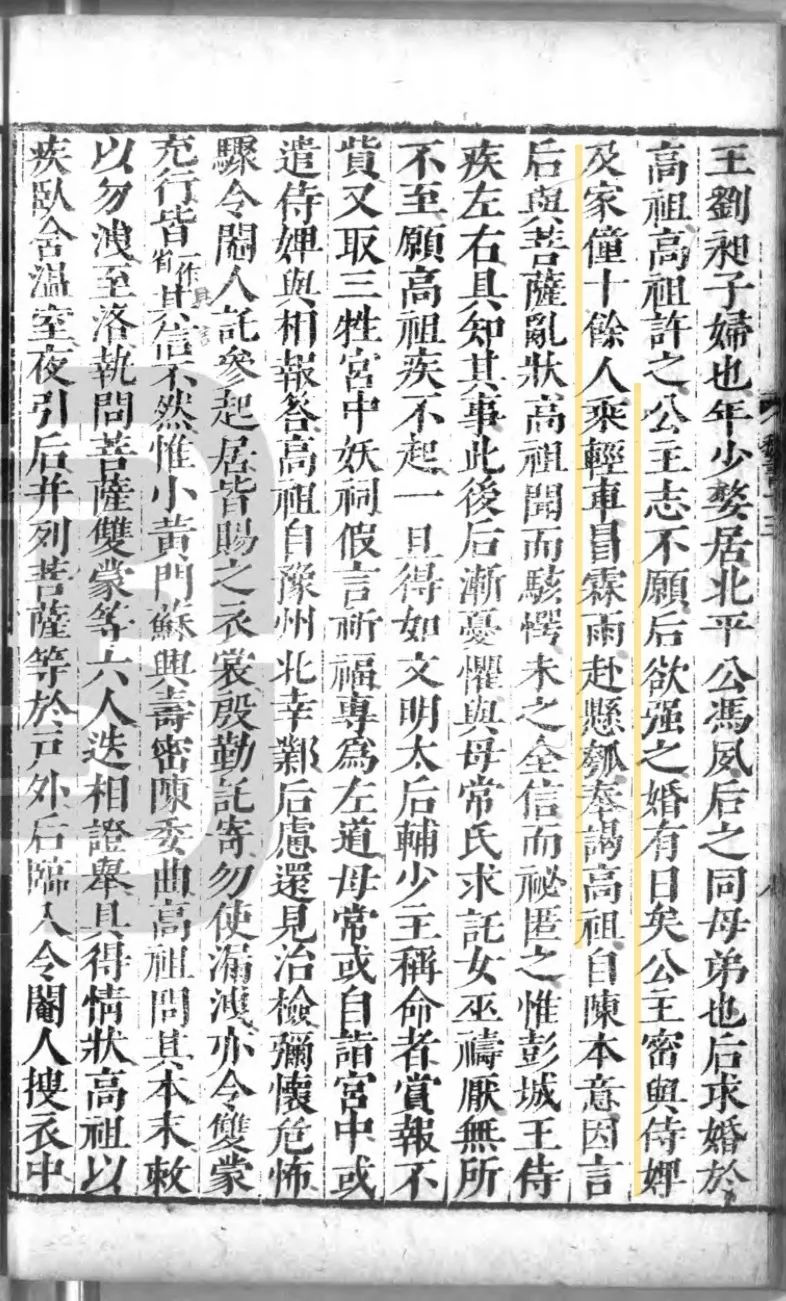 王劉昶子婦也年少嫠居北平公馮夙后之同母弟也后求婚於
高祖高祖許之公主志不願后欲强之婚有日矣公主密與侍婢
及家僮十餘人乘輕車冒霖雨赴懸瓠奉謁高祖自陳本意因言
后與菩薩亂狀高祖聞而駭愕未之全信而祕匿之惟彭城王侍
疾左右具知其事此後后漸憂懼與母常氏求託女巫禱厭無所
不至願高祖疾不起一旦得如文明太后輔少主稱命者賞報不
貲又取三牲宮中妖祠假言祈福專爲左道母常或自詣宮中或
遣侍婢與相報答高祖自豫州北幸鄴后慮還見治檢彌懷危怖
驟令閹人託參起居皆賜之衣裳殷勤託寄勿使漏洩亦令雙蒙
充行皆省一作其信不然惟小黃門蘇興壽密陳委曲高祖問其本末敕
以勿洩至洛執問菩薩雙蒙等六人迭相證舉具得情狀高祖以
疾臥含温室夜引后并列菩薩等於戸外后臨入令閹人搜衣中